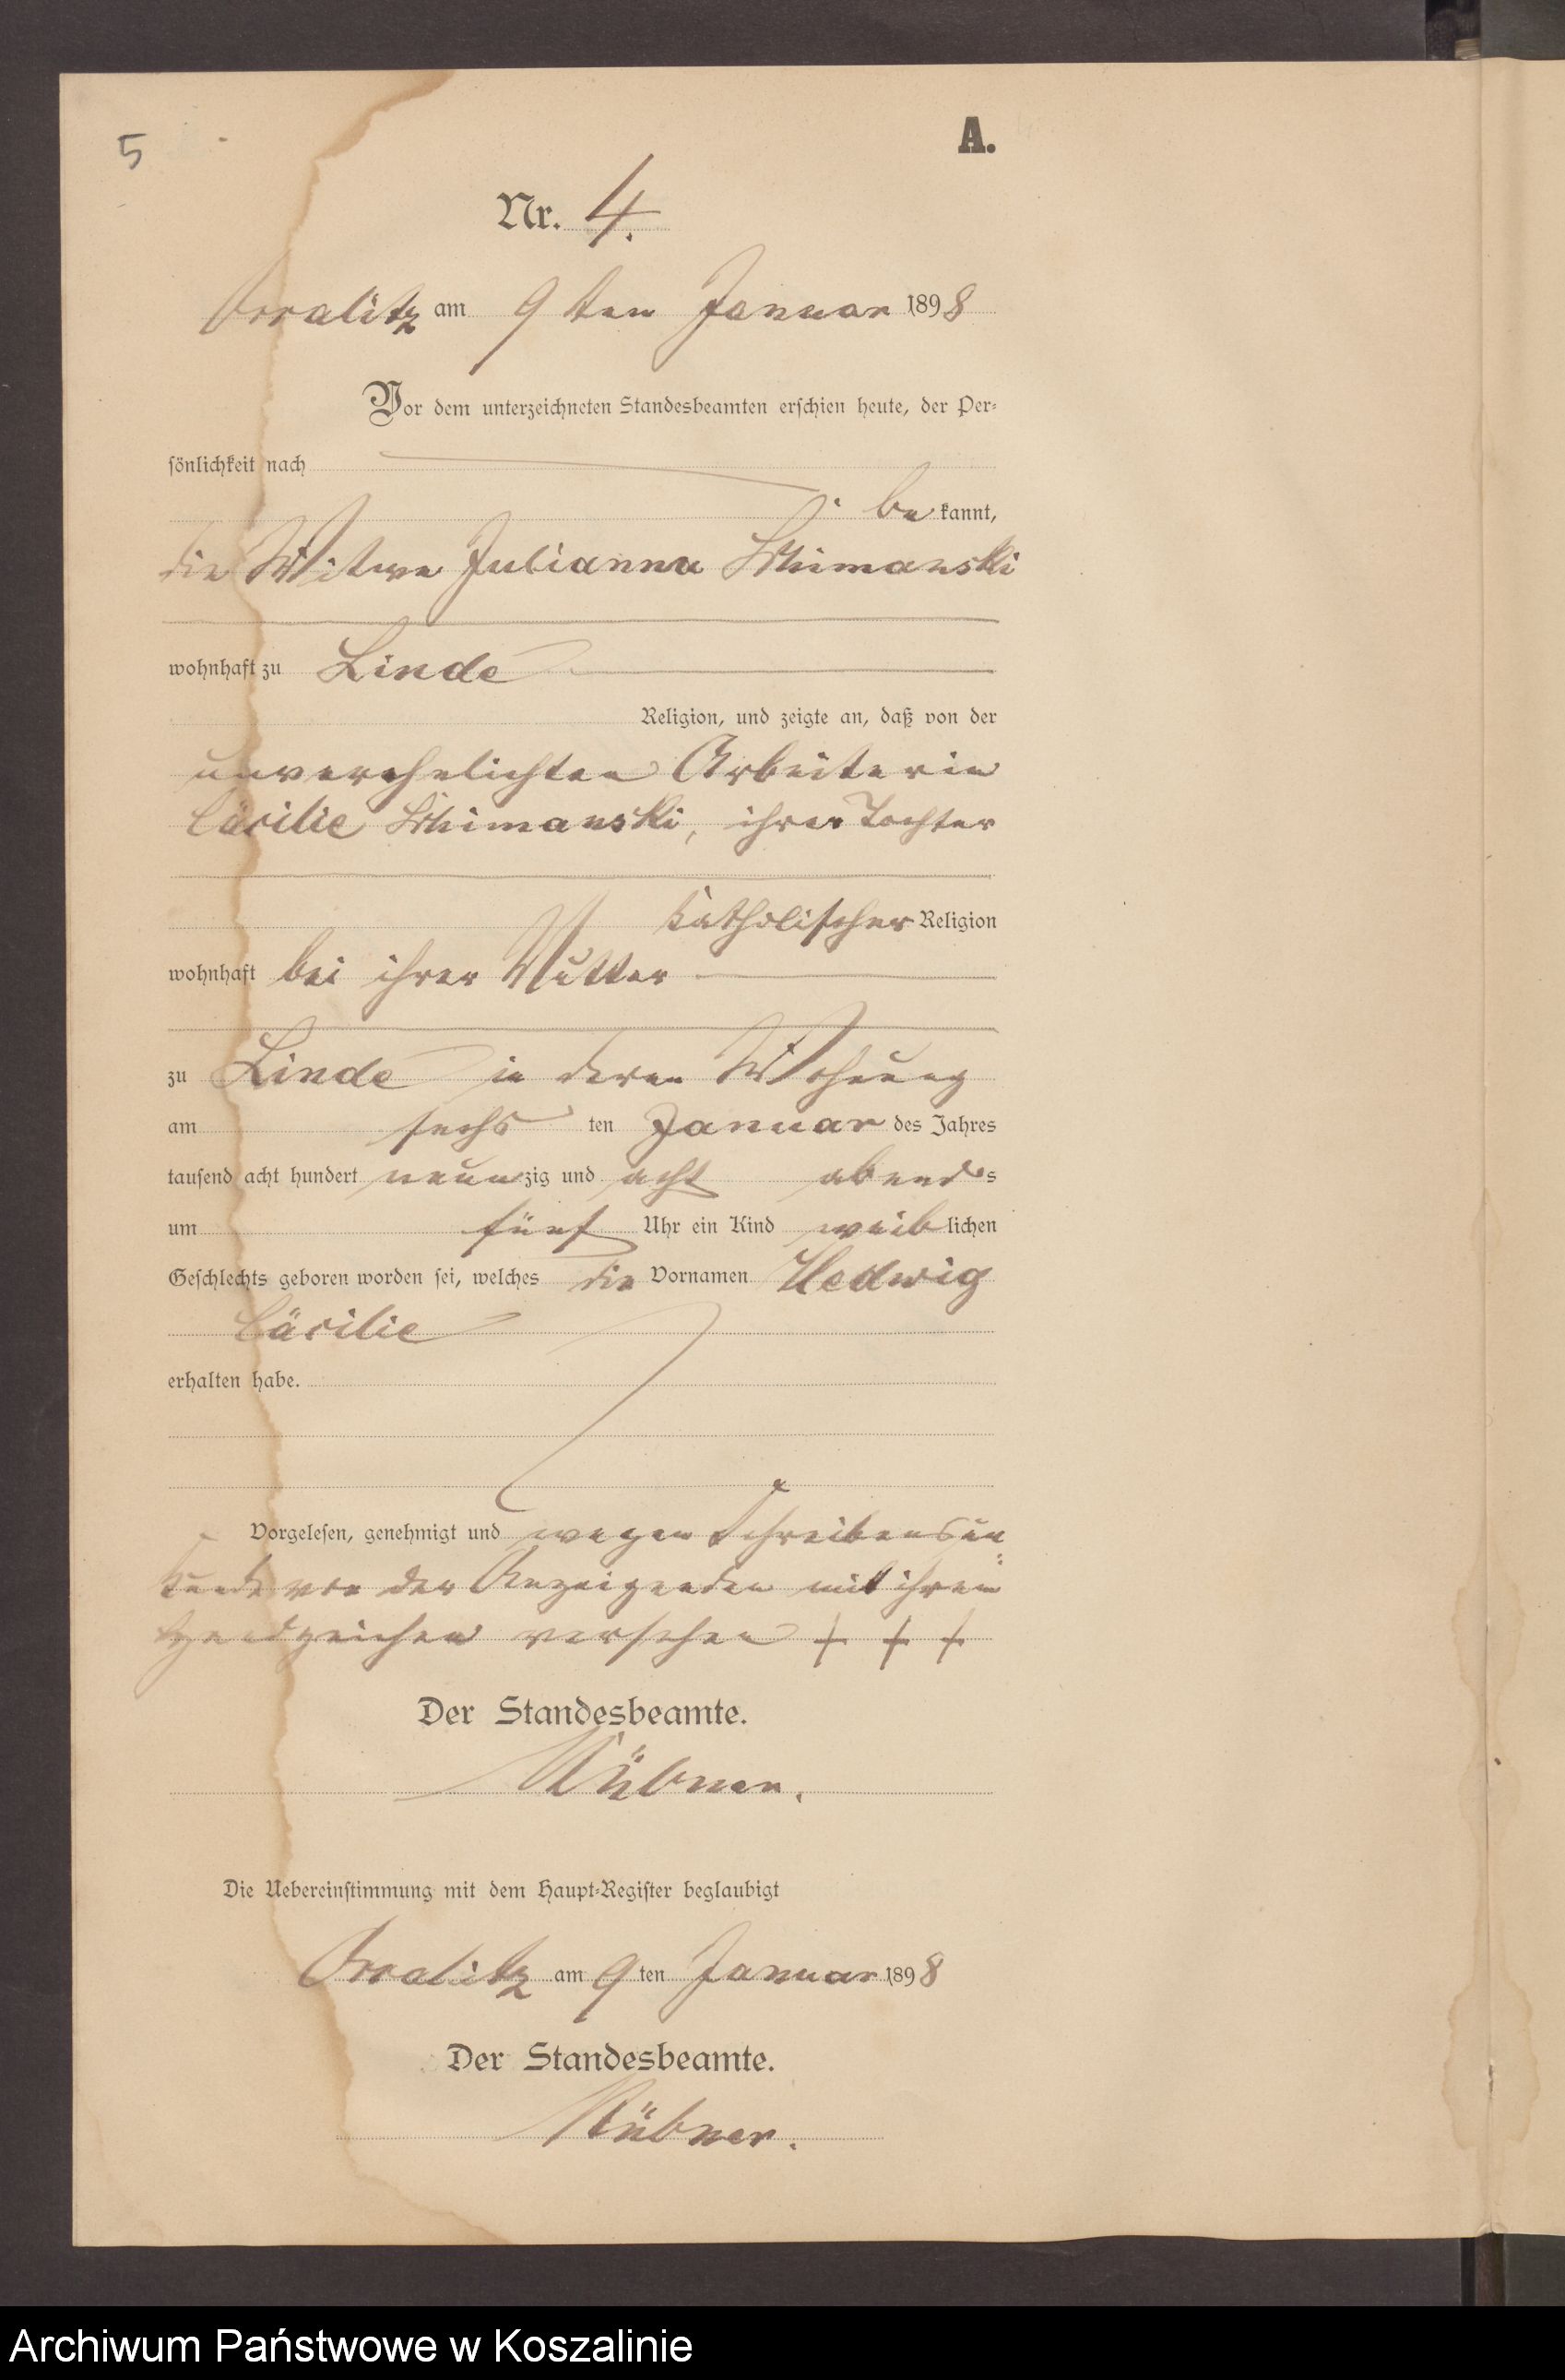 5
A.
Nr. 4.
am 9ten Januar 1898
Vor dem unterzeichneten Standesbeamten erschien heute, der Per-
sönlichkeit nach
bekannt,
die Witwe Julianna
wohnhaft zu Linde
Religion, und zeigte an, daß von der
unverehelichten Arbeiterin
Cäcilie, ihrer Tochter
katholischer Religion
wohnhaft bei ihrer Mutter
zu Linde in deren Wohnung
am sechsten Januar des Jahres
tausend acht hundert neunzig und acht abends
um fünf Uhr ein Kind weiblichen
Geschlechts geboren worden sei, welches die Vornamen Hedwig
Cäcilie
erhalten habe.
Vorgelesen, genehmigt und wegen Schreibensun-
kunde von der Anzeigenden mit ihrem
Handzeichen versehen + + +
Der Standesbeamte.
Die Uebereinstimmung mit dem Haupt-Register beglaubigt
am 9ten Januar 1898
Der Standesbeamte.
Archiwum Państwowe w Koszalinie